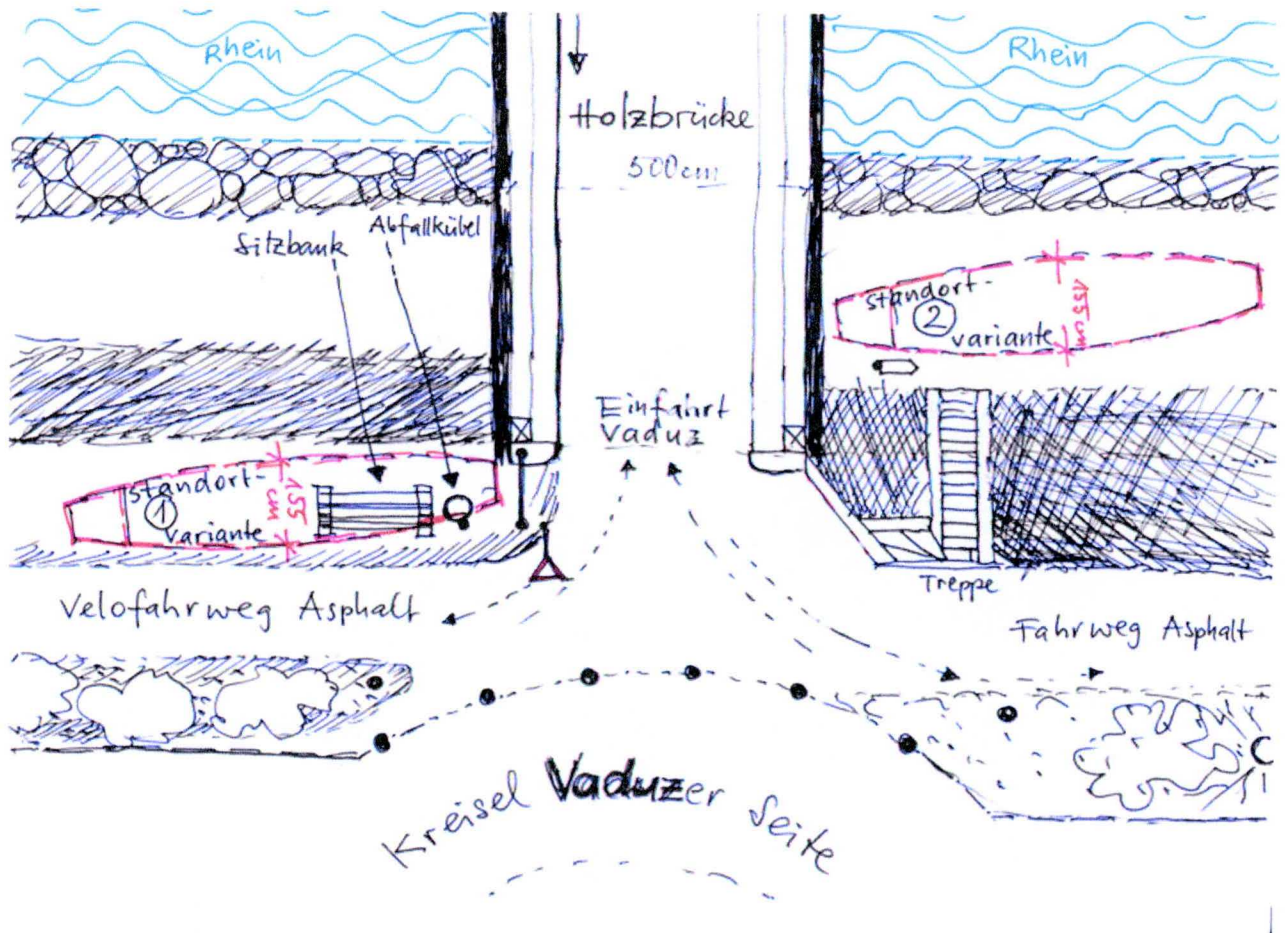 Rhein
Rhein
Holzbrücke
500cm
Sitzbank
Abfallkübel
standort-
2
variante
155 cm
Einfahrt
Vaduz
standort-
1
variante
155
cm
Treppe
Velofahrweg Asphalt
Fahrweg Asphalt
Kreisel Vaduzer Seite